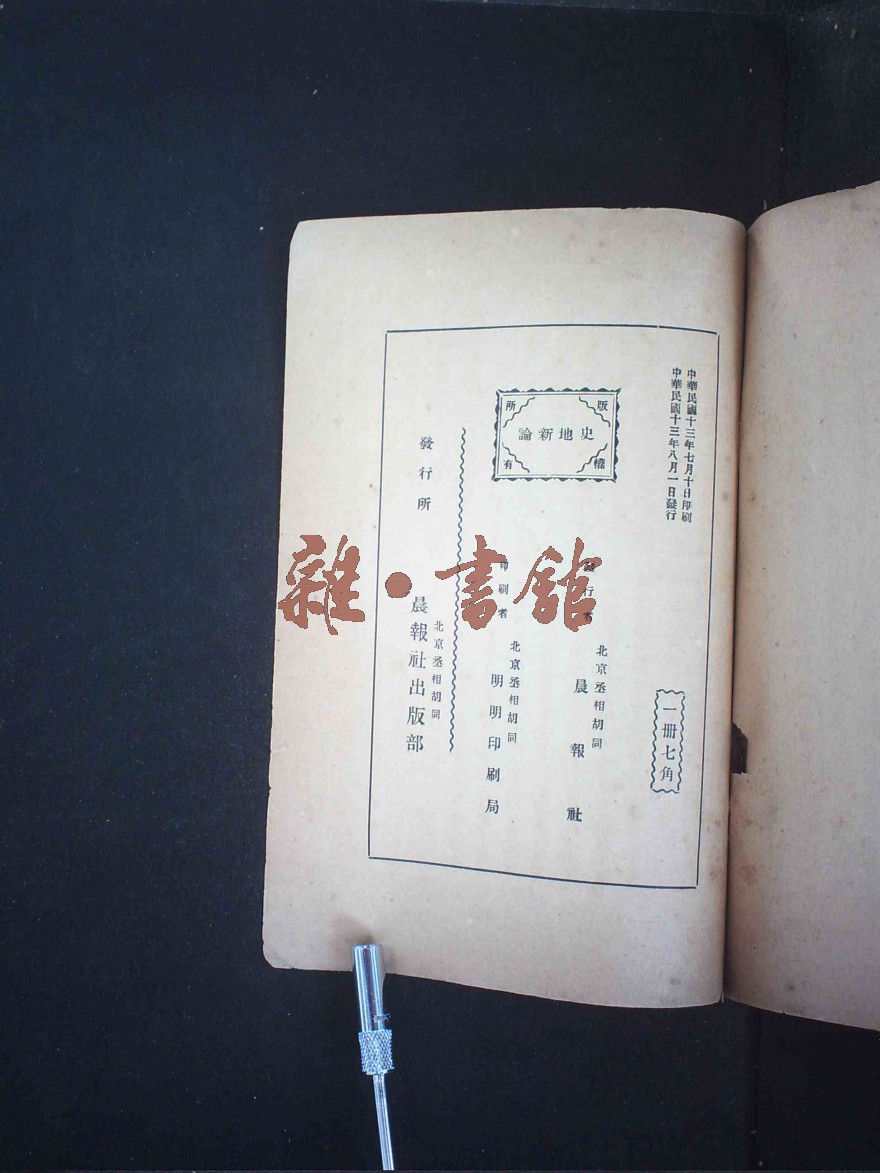 中華民國十三年七月十日印刷
中華民國十三年八月一日發行
一冊七角
版權所有
史地新論
發行者
北京丞相胡同
晨報社
印刷者
北京丞相胡同
明明印刷局
發行所
北京丞相胡同
晨報社出版部
雜·書館